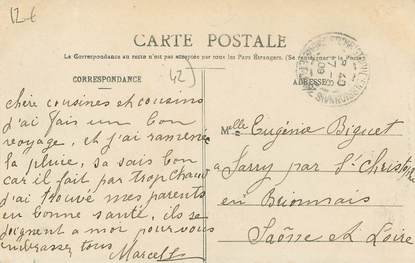 12€
CARTE POSTALE
La Correspondance au recto n'est pas acceptée par tous les Pays Étrangers. (Se renseigner à la Poste)
CORRESPONDANCE
42
ADRESSE
chère cousines et cousins
j'ai fais un bon
voyage, et j'ai ramené
la pluie, sa sais bon
car il fait par trop chaud
j'ai trouvé mes parents
en bonne santé, ils se
joignent a moi pour vous
embrasser tous
Marcel
Melle Eugéna Biguet
a Sarry par St Christophe
en Brionnais
Saône et Loire